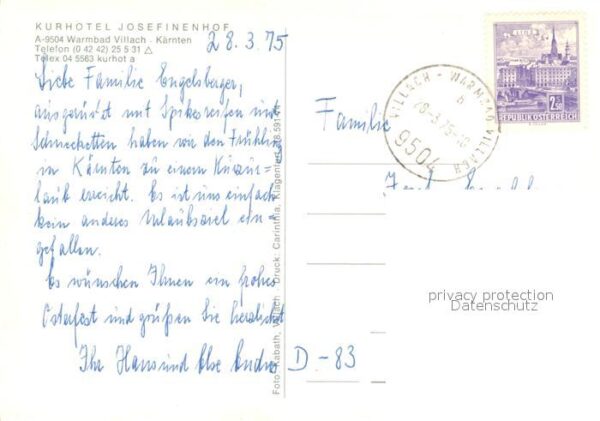 KURHOTEL JOSEFINENHOF
A-9504 Warmbad Villach - Kärnten
Telefon (0 42 42) 25 5 31 △
Telex 04 5563 kurhot a
28.3.75
Liebe Familie Engelsberger,
ausgerüstet mit Spikesreifen und
Schneeketten haben wir den Frühling
in Kärnten zu einem Kurzur=
laub erreicht. Es ist uns einfach
kein anderes Urlaubsziel ein=
gefallen.
Es wünschen Ihnen ein frohes
Osterfest und grüßen Sie herzlichst
Ihr Hans und Else
Foto: Sabath, Villach Druck: Carinthia, Klagenfurt
VILLACH - WARMBAD VILLACH
9504
LINZ
REPUBLIK ÖSTERREICH
Familie
D-83
privacy protection
Datenschutz